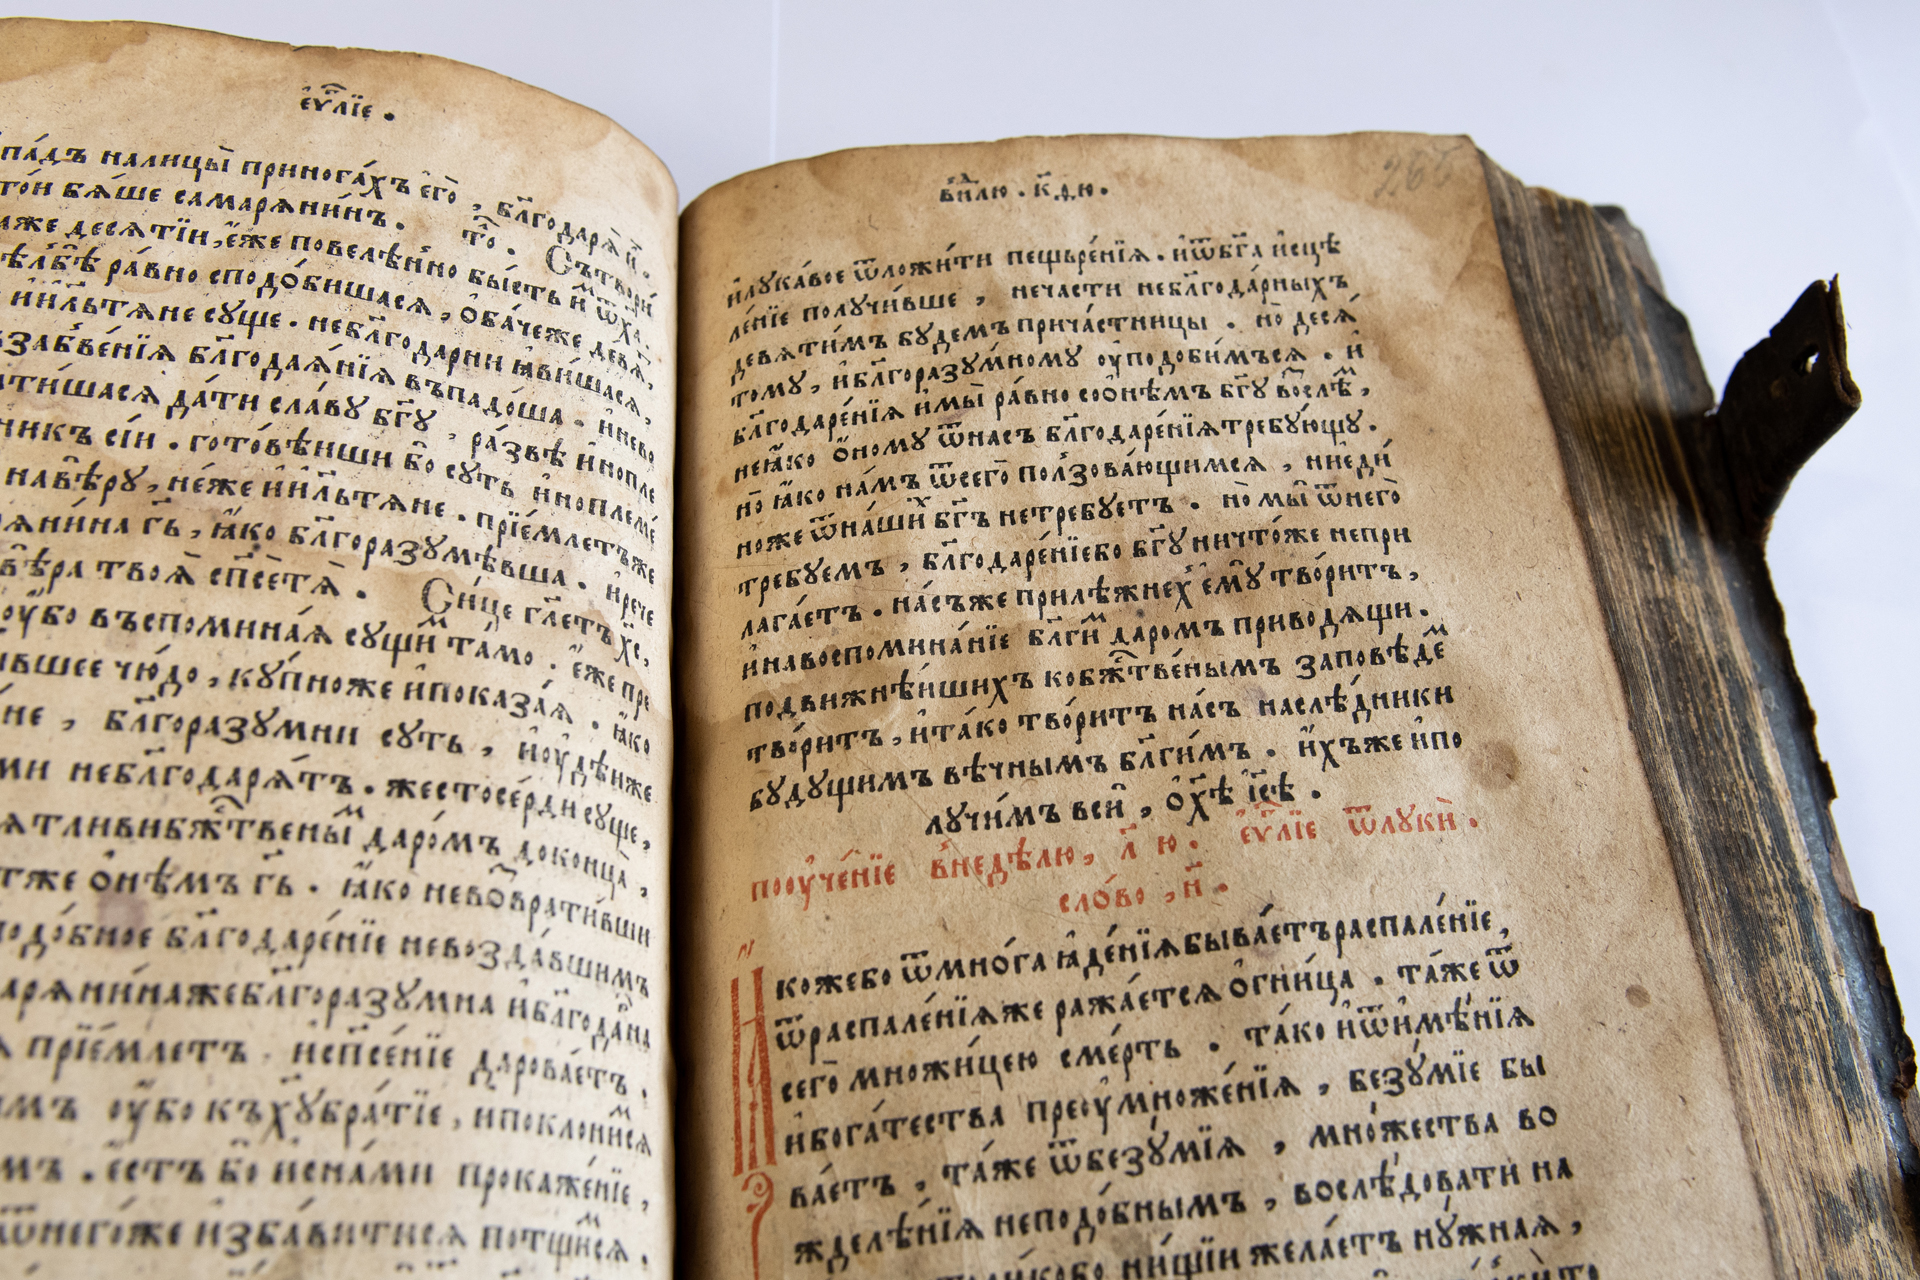 є҆ѵⷢ҇лїе .
па́дъ налицы̀ приногáхъ є҆гѡ̀ , бл҃годаря̀ и҆̀ .
то́й бя́ше самаряни́нъ . то̑ . Сътвори́
десятїи , є҆́же повелѣ́нно бы́сть и҆ⷨ ѿх҃а .
ра́вно сподо́бишася , ѻ҆ба́чеже девя́
и҆и҃льтяне суще . небл҃годарни ꙗ҆ви́шася ,
забве́нїя бл҃годая́нїя въпадо́ша . и҆нево
тишася да́ти сла́ву бг҃у , ра́звѣ и҆нопле
никъ сїи . гото́вѣиши бо суть и҆ноплемѐ
навѣ́ру , не́же и҆и҃льтяне . прїе́млетъже
ряни́на гь҃ , ꙗ҆́ко бл҃горазꙋмѣ́вша . и҆рече
вѣ́ра твоя̀ сп҃сѐтя̀ . Си́це гл҃етъ х҃с ,
оу҆́бо въспомина́я сущиⷨ та́мо . є҆́же пре
вшее чю́до , ку́пноже и҆показа́я . ꙗ҆́ко
не , бл҃горазꙋмни суть , и҆оу҆дѣ́иже
ми небл҃годаря́тъ . жестосе́рди суще ,
ятливибж҃твены́ⷨ даро́мъ доконца̀ ,
тже ѻ҆нѣ́мъ гь҃ . ꙗ҆́ко невоⷥврати́вши
подо́бное бл҃годаре́нїе невозда́вшимъ
аряни́нажебл҃горазꙋмна и҆бл҃года́рна
прїе́млетъ . и҆сп҃се́нїе дарова́етъ .
мъ оу҆́бо къх҃ꙋбра́тїе , и҆поклони́ⷨся
мъ . є҆́сть бо исна́ми прокаже́нїе ,
ѿнего́же и҆зба́витися потщи́ⷨся .
внⷣлю . к҃д , ю .
и҆лука́вое ѿложи́ти пещьре́нїя . и҆ѿбг҃а и҆сцѣ
ле́нїе получи́вше , нечасти небл҃года́рныхъ
девяти́мъ бꙋдемъ прича́стницы . но̀ деся́
тому , и҆бл҃горазꙋ́мному оу҆подоби́мъся . и҆
бл҃годаре́нїя и҆мы̀ ра́вно соѻ҆нѣ́мъ бг҃ꙋ воⷥслѣⷨ ,
неꙗ҆́ко ѻ҆́ному ѿнасъ бл҃годаре́нїятребꙋ́ющꙋ .
но̀ ꙗ҆́ко на́мъ ѿсего̀ пол́зова́ющимся , ниеди́
ноже ѿна́шиⷯ бг҃ъ нетребꙋ́етъ . но̀ мы̀ ѿнего̀
требꙋемъ , бл҃годаре́нїебо бг҃ꙋ ничто́же непри
лага́етъ . на́съже прилѣ́жнеⷯ є҆мꙋ̀ тво́ритъ ,
и҆навоспомина́нїе бл҃гиⷨ даромъ приводящи .
подвижнѣ́ишихъ кобж҃тве́нымъ заповѣ́деⷨ
тво́ритъ , и҆та́ко тво́ритъ на́съ наслѣ́дники
бꙋдꙋщимъ вѣ́чнымъ бл҃ги́мъ . и҆́хъже и҆по
лꙋчи́мъ вси̑ , ѻ҆х҃ѣ і҆с҃ѣ .
поꙋче́нїе внедѣ́лю , л҃ ю . є҆ѵⷢ҇лїе ѿлꙋки̑ .
сло́во , и҃ .
Ꙗ҆кожебо ѿмно́га ꙗ҆де́нїябыва́етъраспале́нїе ,
ѿраспале́нїяже ражáется ѻ҆гни́ца . та́же ѿ
сего̀ множи́цею сме́рть . та́ко и҆ѿи҆мѣ́нїя
и҆бога́тества преꙋ҆множе́нїя , безꙋ́мїе бы
ва́етъ , та́же ѿбезꙋ́мїя , мно́жества во
ждел ѣ́нїя неподо́бнымъ , вослѣ́довати на
ни́щїи жела́етъ нꙋ́жная ,